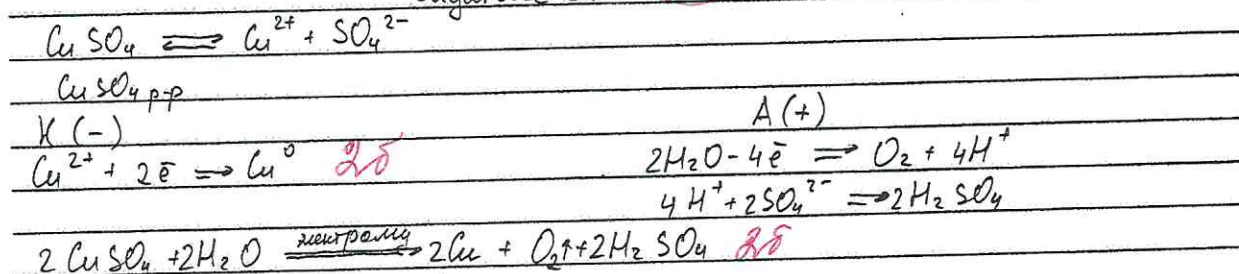 CuSO₄ ⇌ Cu²⁺ + SO₄²⁻
CuSO₄ р-р
К (-) А (+)
Cu²⁺ + 2ē ⇒ Cu⁰ 2б 2H₂O - 4ē ⇒ O₂ + 4H⁺
4H⁺ + 2SO₄²⁻ ⇒ 2H₂SO₄
2CuSO₄ + 2H₂O электролиз 2Cu + O₂↑ + 2H₂SO₄ 2б